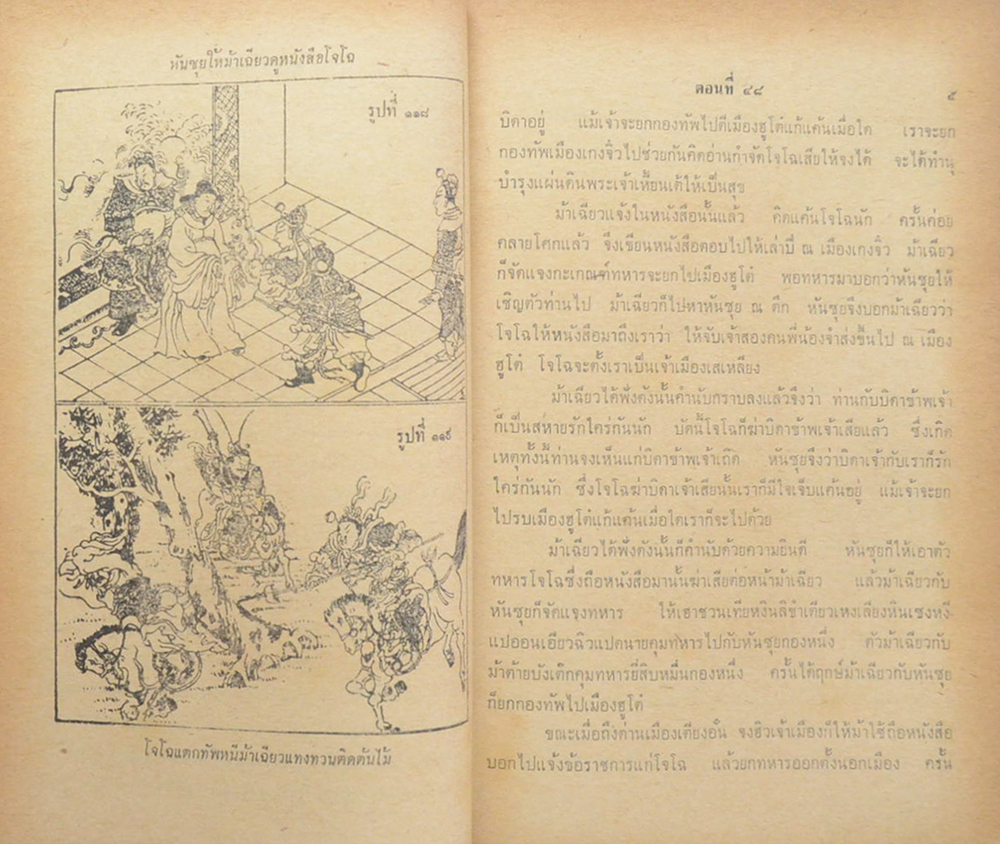 หันซุยให้ม้าเฉียวดูหนังสือโจโฉ
รูปที่ ๑๑๘
รูปที่ ๑๑๙
โจโฉแตกทัพหนีม้าเฉียวแทงทวนติดต้นไม้
ตอนที่ ๔๘
๕
บิดาอยู่ แม้เจ้าจะยกกองทัพไปตีเมืองฮูโต๋แก้แค้นเมื่อใด เราจะยก
กองทัพเมืองเกงจิ๋วไปช่วยกันคิดอ่านกำจัดโจโฉเสียให้จงได้ จะได้ทำนุ
บำรุงแผ่นดินพระเจ้าเหี้ยนเต้ให้เป็นสุข
ม้าเฉียวแจ้งในหนังสือนั้นแล้ว คิดแค้นโจโฉนัก ครั้นค่อย
คลายโศกแล้ว จึงเขียนหนังสือตอบไปให้เล่าปี่ ณ เมืองเกงจิ๋ว ม้าเฉียว
ก็จัดแจงกะเกณฑ์ทหารจะยกไปเมืองฮูโต๋ พอทหารมาบอกว่าหันซุยให้
เชิญตัวท่านไป ม้าเฉียวก็ไปหาหันซุย ณ ตึก หันซุยจึงบอกม้าเฉียวว่า
โจโฉให้หนังสือมาถึงเราว่า ให้จับเจ้าสองคนพี่น้องจำส่งขึ้นไป ณ เมือง
ฮูโต๋ โจโฉจะตั้งเราเป็นเจ้าเมืองเสเหลียง
ม้าเฉียวได้ฟังดังนั้นคำนับกราบลงแล้วจึงว่า ท่านกับบิดาข้าพเจ้า
ก็เป็นสหายรักใคร่กันนัก บัดนี้โจโฉก็ฆ่าบิดาข้าพเจ้าเสียแล้ว ซึ่งเกิด
เหตุทั้งนี้ท่านจงเห็นแก่บิดาข้าพเจ้าเถิด หันซุยจึงว่าบิดาเจ้ากับเราก็รัก
ใคร่กันนัก ซึ่งโจโฉฆ่าบิดาเจ้าเสียนั้นเราก็มีใจเจ็บแค้นอยู่ แม้เจ้าจะยก
ไปรบเมืองฮูโต๋แก้แค้นเมื่อใดเราก็จะไปด้วย
ม้าเฉียวได้ฟังดังนั้นก็คำนับด้วยความยินดี หันซุยก็ให้เอาตัว
ทหารโจโฉซึ่งถือหนังสือมานั้นฆ่าเสียต่อหน้าม้าเฉียว แล้วม้าเฉียวกับ
หันซุยก็จัดแจงทหาร ให้เฮาชวนเทียหงินลิขำเตียวเหงเลียงหินเซงหงี
แปอวนเอียวฉิวแปดนายคุมทหารไปกับหันซุยกองหนึ่ง ตัวม้าเฉียวกับ
ม้าต้ายบังเต๊กคุมทหารยี่สิบหมื่นกองหนึ่ง ครั้นได้ฤกษ์ม้าเฉียวกับหันซุย
ก็ยกกองทัพไปเมืองฮูโต๋
ขณะเมื่อถึงด่านเมืองเตียงอัน จงฮิวเจ้าเมืองก็ให้ม้าใช้ถือหนังสือ
บอกไปแจ้งข้อราชการแก่โจโฉ แล้วยกทหารออกตั้งนอกเมือง ครั้น